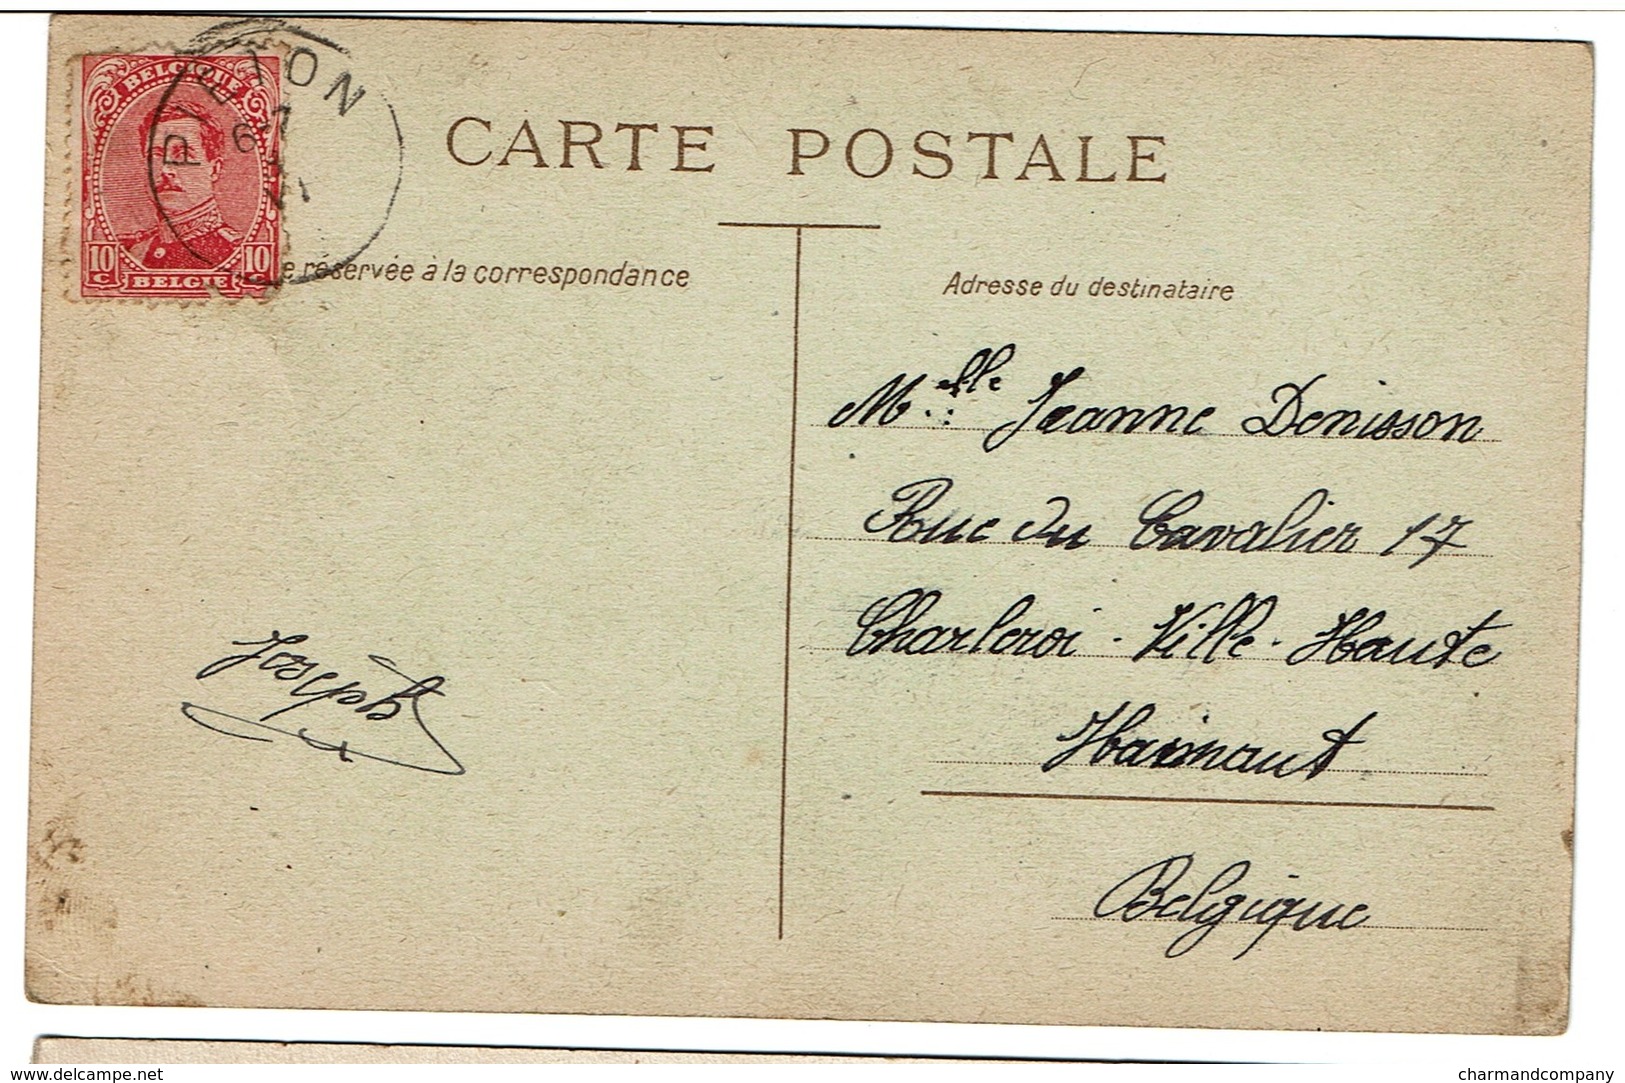 BELGIQUE
10 c 10 c
BELGIE
PIÉTON
CARTE POSTALE
e réservée à la correspondance
Adresse du destinataire
Melle Jeanne Denisson
Rue du Cavalier 17
Charleroi - Ville - Haute
Hainaut
Belgique
Joseph
www.delcampe.net
charmandcompany